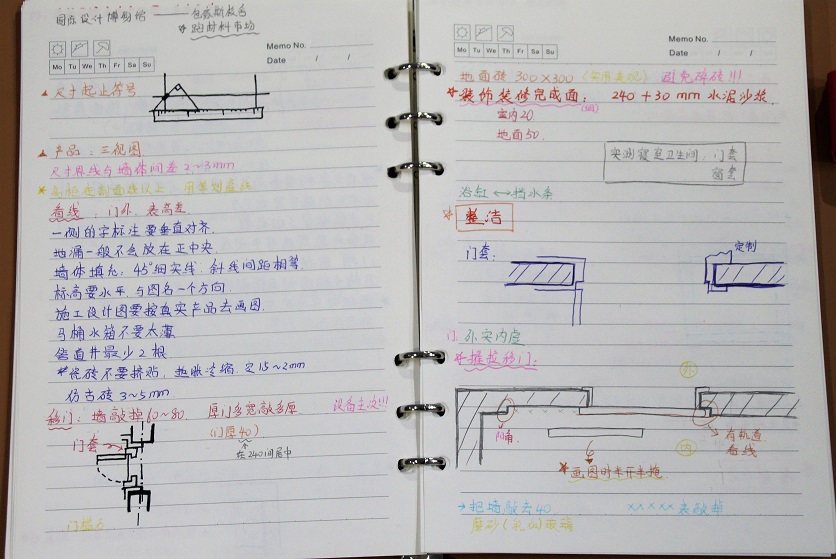 国际设计博物馆 —— 包豪斯教育
* 跑材料市场
Memo No.
Mo Tu We Th Fr Sa Su
Date / /
▲ 尺寸起止符号
▲ 产品：三视图
尺寸界线与墙体间差 2~3mm
看线、门外、表高差
一侧的字标注要垂直对齐.
地漏一般不会放在正中央
墙体填充：45°细实线 斜线间距相等.
标高要水平，与图名一个方向
施工设计图要按真实产品去画图
马桶水箱不要太薄
管道井最少2根
*瓷砖不要挤贴，热胀冷缩，空15~2mm
仿古砖 3~5mm
移门：墙敲掉60~80. 厚门多宽敲多厚 设备主次!!!
(门厚40)
门套
在240间居中
Memo No.
Mo Tu We Th Fr Sa Su
Date / /
地面砖 300×300 避免碎砖!!!
* 装饰装修完成面： 240+30mm 水泥沙浆.
室内20
地面50.
实测寝室卫生间，门套
窗套
浴缸 ↔ 挡水条
* 整洁
门套：
定制
门. 外实内虚
*推拉移门：
外
内
有轨道
看线
* 画图时半开半掩
→ 把墙敲去40 ××××× 表敲掉
磨砂(乳白)玻璃